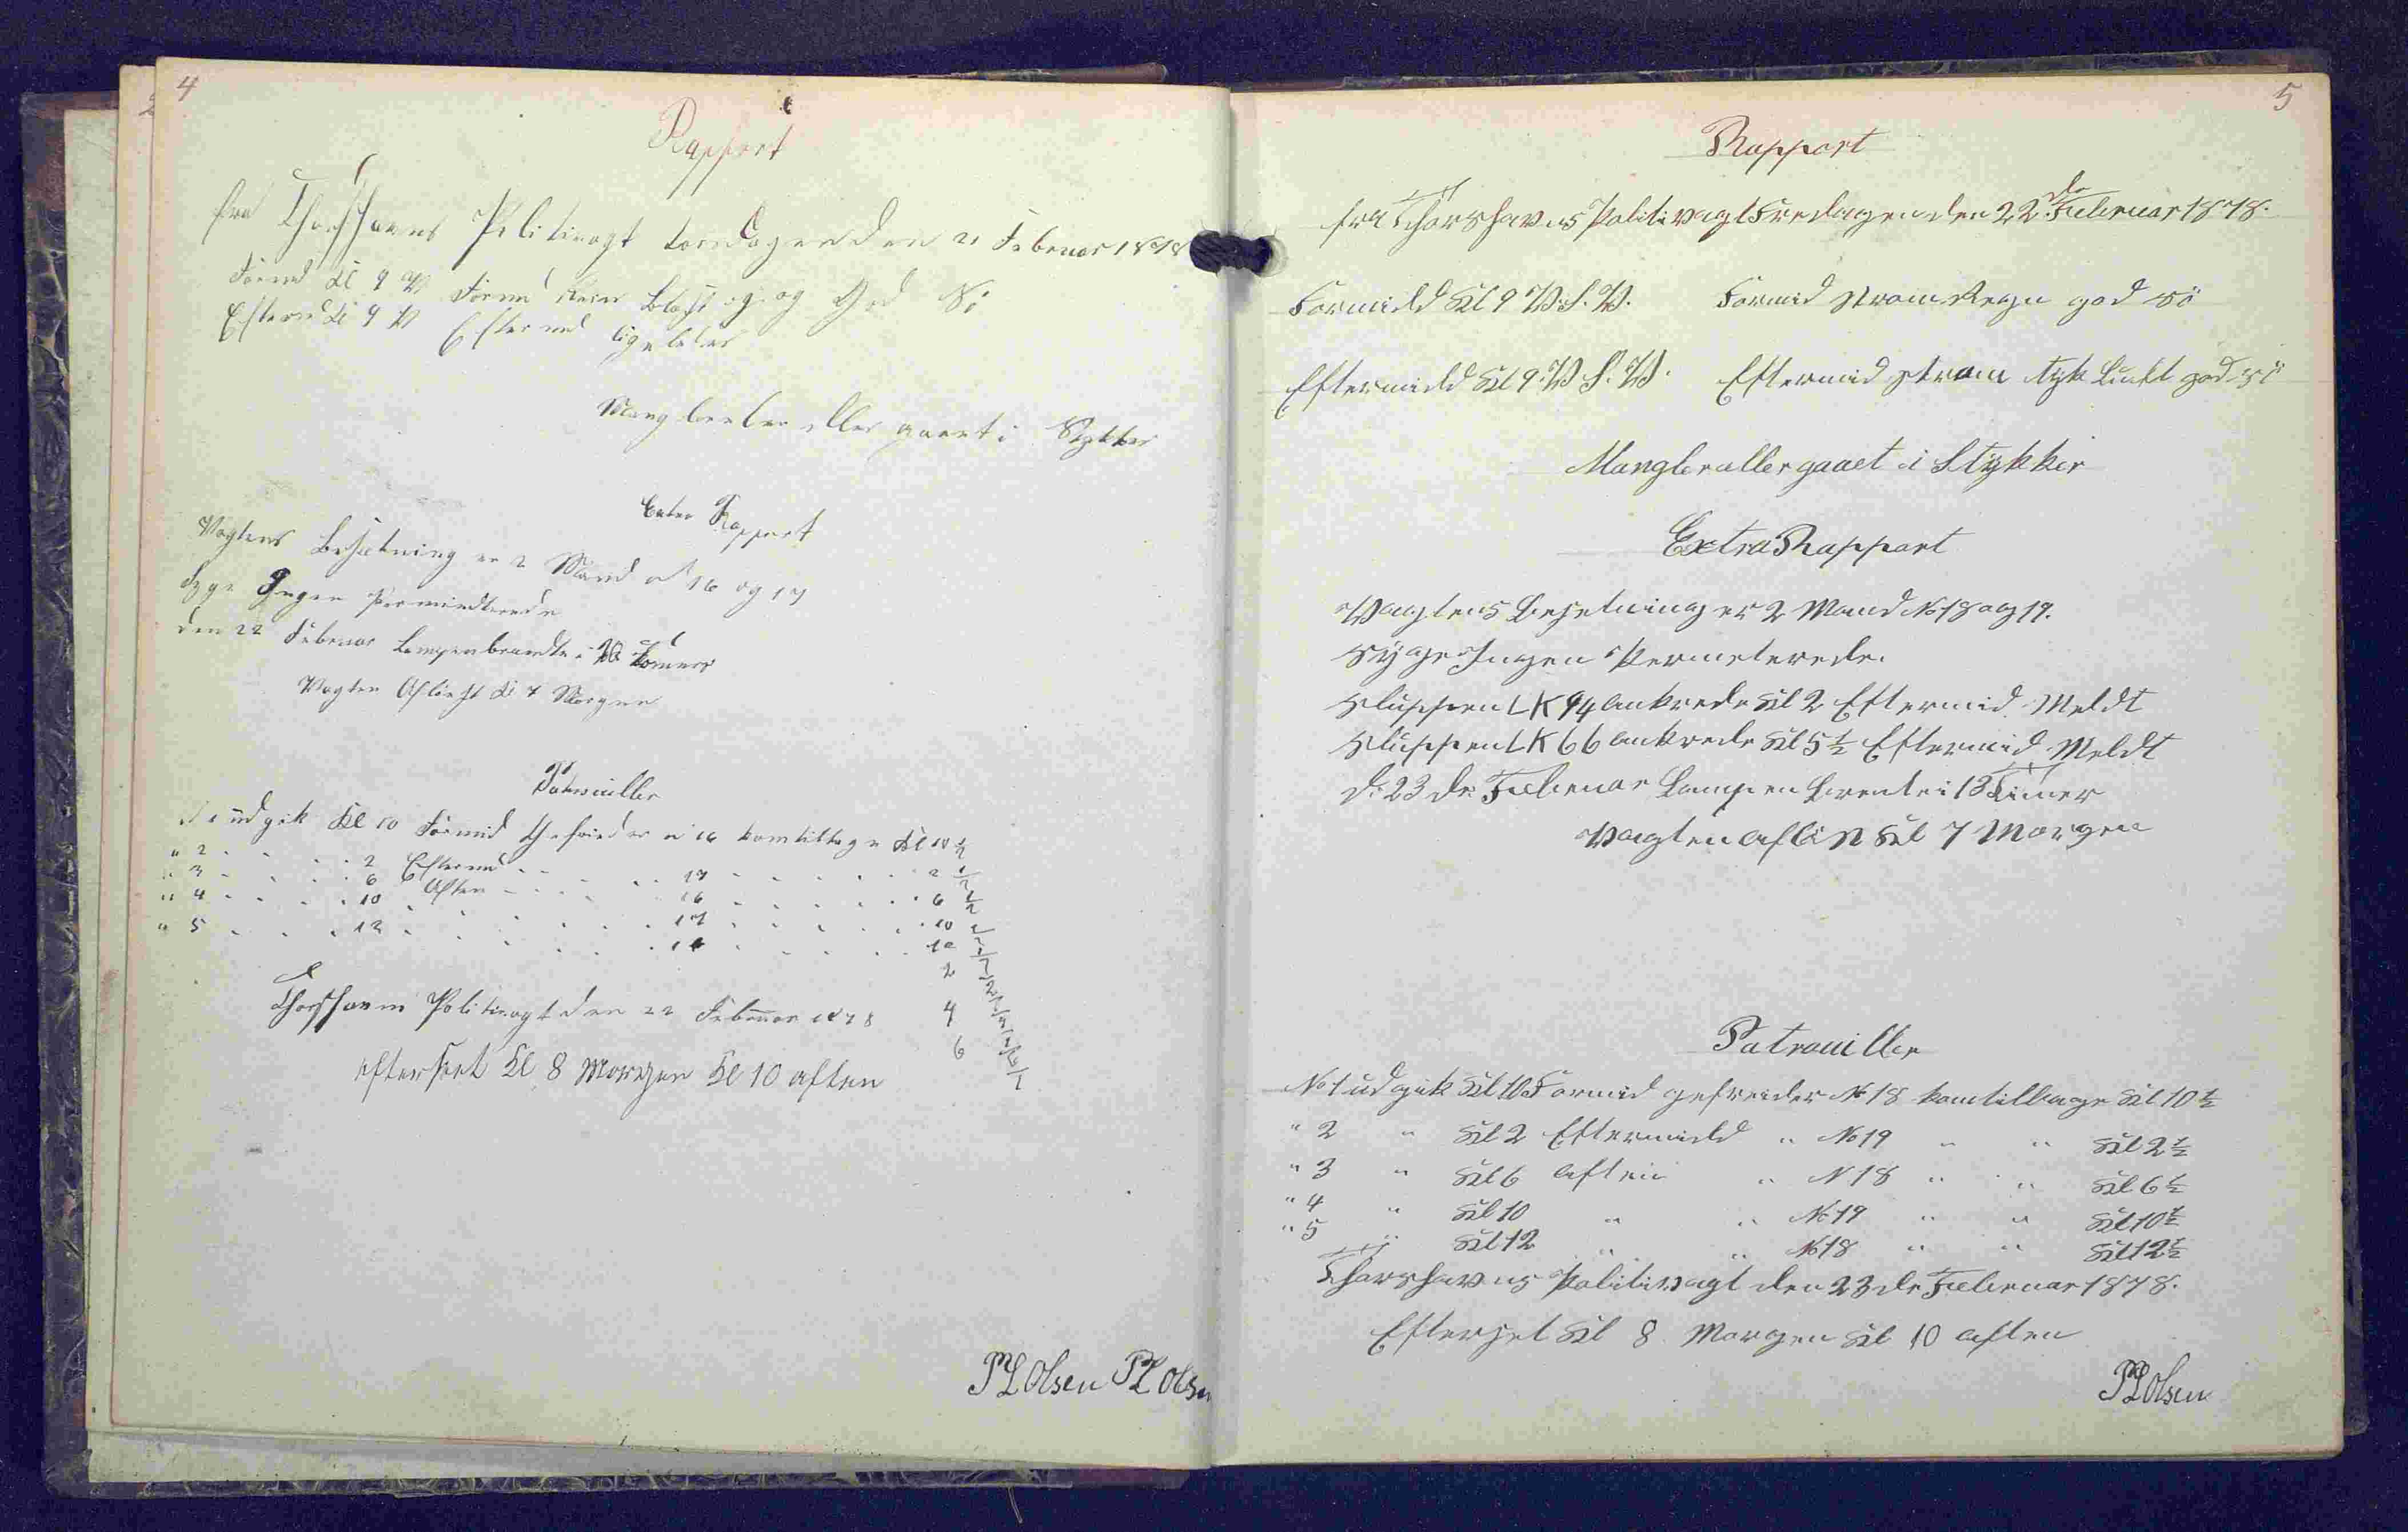 4
Rapport
fra Thorshavns Politivagt torsdagen den 21 Februar 1878
Formd Kl 9 W Formd Bløst og god Sö
Eftermd Kl 9 W Eftermd ligeledes
Mangler eller gaaet i Stykker
Extra Rapport
Vagtens Besætning er 2 Mand af 16 og 17
Syge Ingen Permiterede
den 22 Februar Lampen brændte i Timer
Vagten Aflöst Kl 7 Morgen
Patrouiller
udgik Kl 10 Formid Gefreider N 16 kom tilbage Kl 10 ½
" 2 . . . . 2 Eftermd . . . 17 . . . . 2 ½
" 3 . . . . 6 Aften . . . 16 . . . . 6 ½
" 4 . . . . 10 . . . . 17 . . . . 10 ½
" 5 . . . . 12 . . . . 16 . . . . 12 ½
2
Thorshavns Politivagt den 22 Februar 1878
4
6
efterseet Kl 8 Morgen Kl 10 aften
PLOlsen PLOlsen
5
Rapport
fra Thorshavns Politivagt Fredagen den 22de Februar 1878.
Formidd Kl 9 V.S.V. Formid Strom Regn god sö
Eftermidd Kl 9 V S.V. Eftermid Strom tyk Luft god sö
Mangler eller gaaet i Stykker
Extra Rapport
Vagtens Besetning er 2 Mand No 18 og 19.
Syge Ingen Permeterede.
Sluppen LK 94 ankrede Kl 2 Eftermid Meldt
Sluppen LK 66 ankrede Kl 5 ½ Eftermid Meldt
D. 23 de Februar Lampen brente i 13 Timer
Vagten aflöst Kl 7 Morgen
Patrouiller
No 1 udgik Kl 10 Formid gefreider No 18 kom tilbage Kl 10 ½
" 2 " Kl 2 Eftermidd " No 19 " " Kl 2 ½
" 3 " Kl 6 aften " N 18 " " Kl 6 ½
" 4 " Kl 10 " " No 19 " " Kl 10 ½
" 5 " Kl 12 " " No 18 " " Kl 12 ½
Thorshavns Politivagt den 23 de Februar 1878.
Efterset Kl 8 Morgen Kl 10 aften
PLOlsen